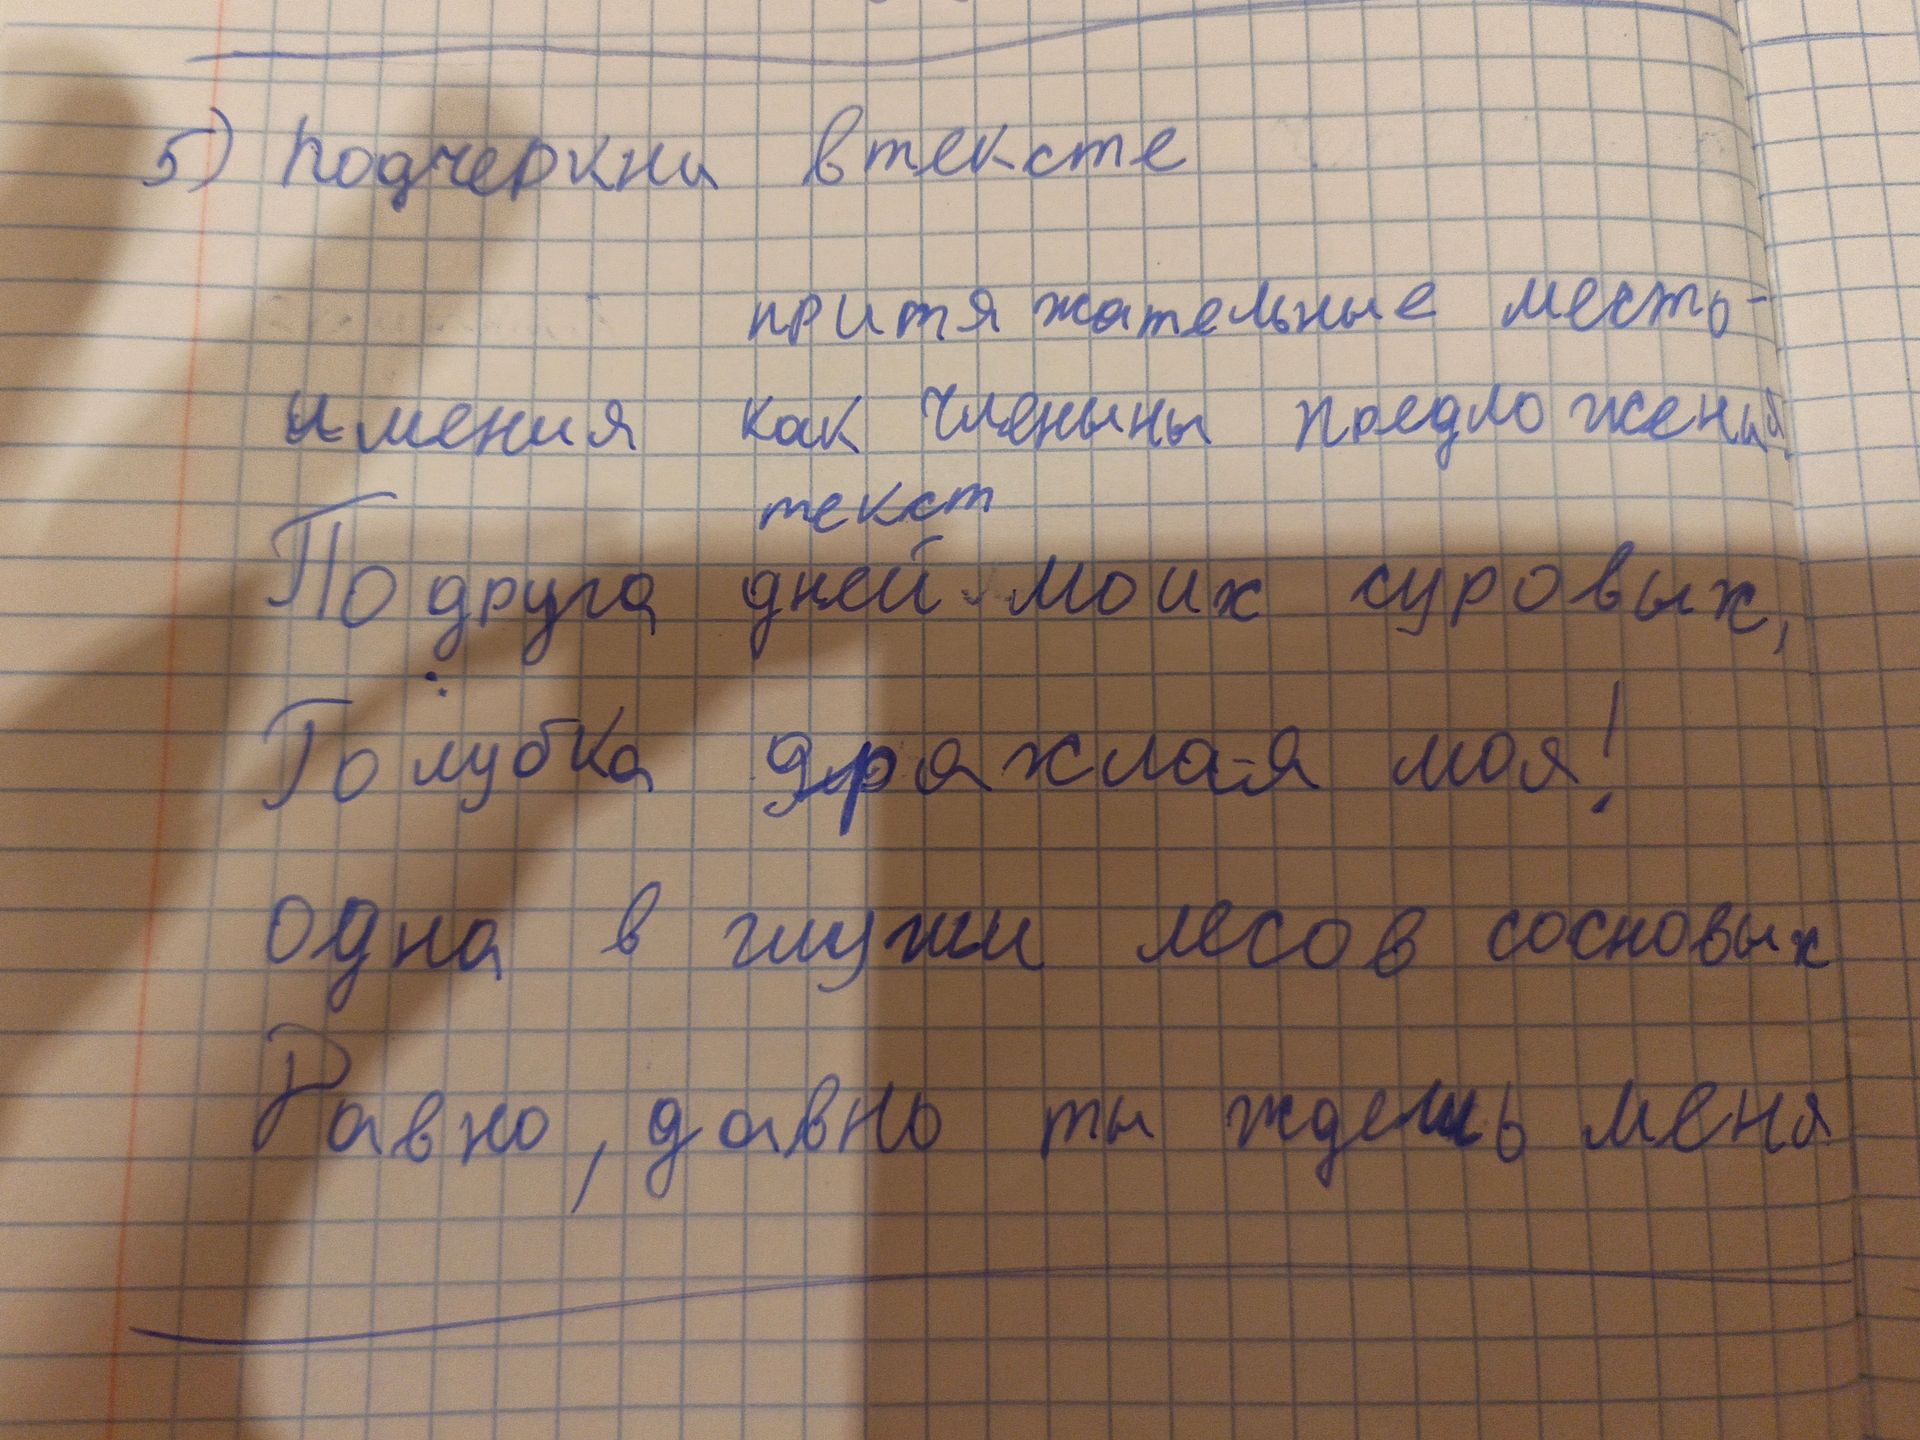 5) подчеркни в тексте
притяжательные место-
имения как членыны предложений
текст
Подруга дней моих суровых,
Голубка дряхлая моя!
одна в глуши лесов сосновых
Давно, давно ты ждешь меня